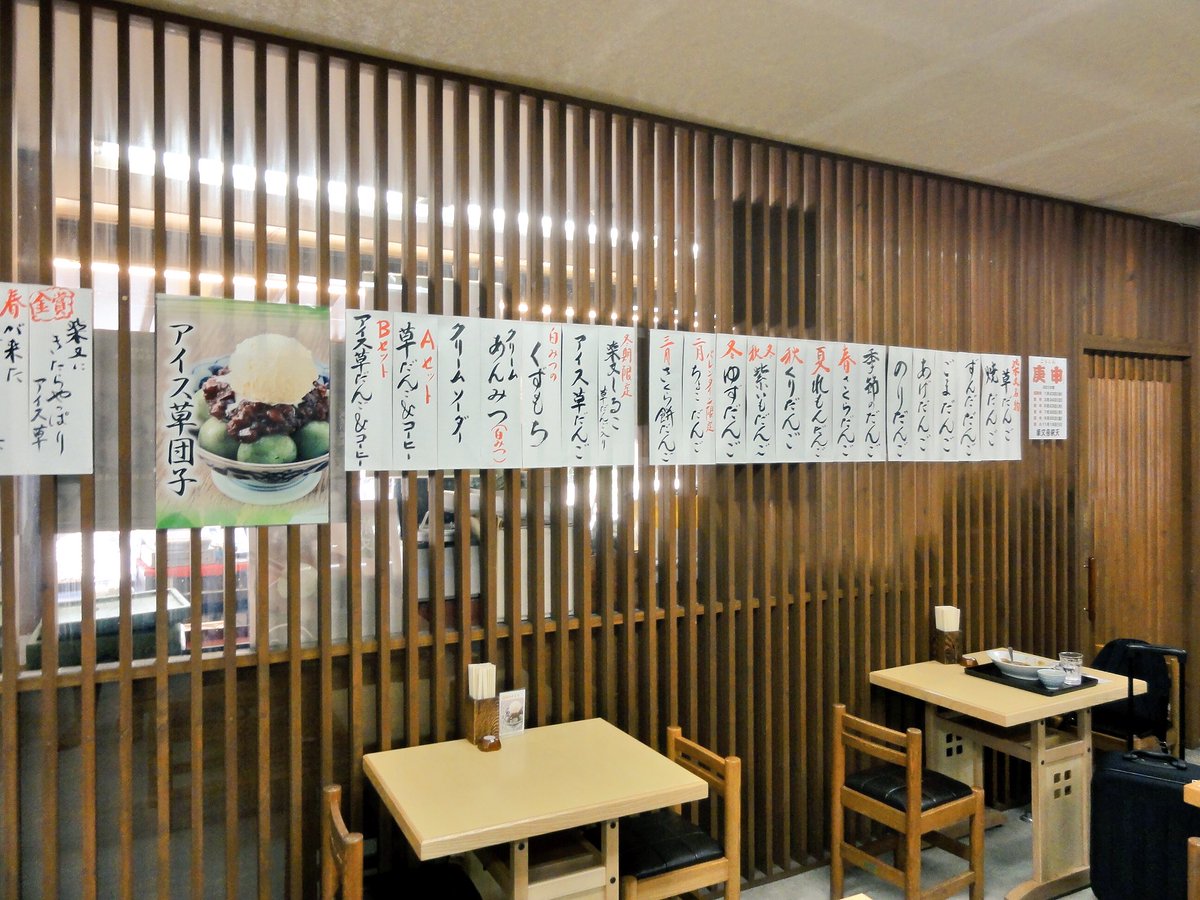 庚申
柴又帝釈天
柴又名物
草だんご
焼だんご
ずんだだんご
ごまだんご
あげだんご
のりだんご
季節のだんご
春さくらだんご
夏れもんだんご
秋くりだんご
秋冬紫いもだんご
冬ゆずだんご
バレンタイン限定
二月ちょこだんご
三月さくら餅だんご
冬期限定
柴又しるこ
草だんご入り
アイス草だんご
白みつの
くずもち
クリーム
あんみつ(白みつ)
クリームソーダー
Aセット
草だんご&コーヒー
Bセット
アイス草だんご&コーヒー
アイス草団子
金賞
柴又に
きたらやっぱり
アイス草
春が来た